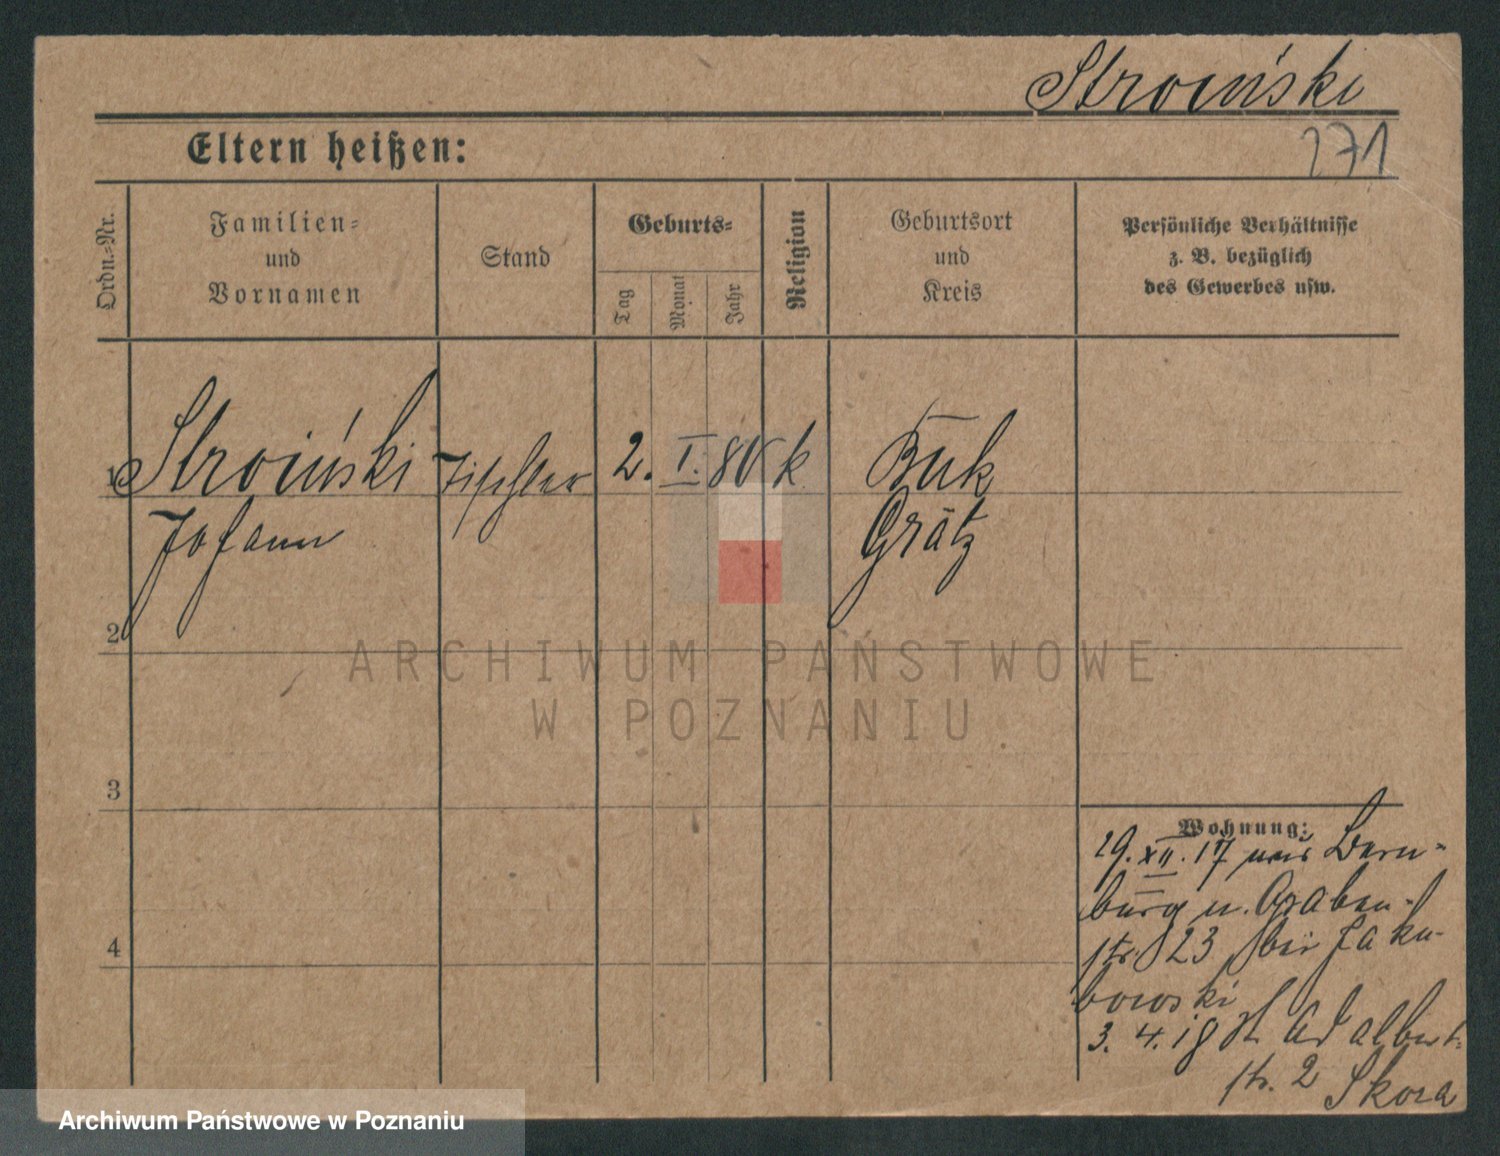 Stroiński
271
Eltern heißen:
Ordn.-Nr.
Familien-
und
Vornamen
Stand
Geburts-
Tag
Monat
Jahr
Religion
Geburtsort
und
Kreis
Persönliche Verhältnisse
z. B. bezüglich
des Gewerbes usw.
1 Stroiński Tischler 2. I. 80 k Buk
Johann Grätz
2
3
4
Wohnung:
29. XII. 17 aus Bern-
burg n. Graben-
str. 23 bei Jaku-
bowski
3. 4. 18 Adalbert-
str. 2 Skora
ARCHIWUM PAŃSTWOWE
W POZNANIU
Archiwum Państwowe w Poznaniu